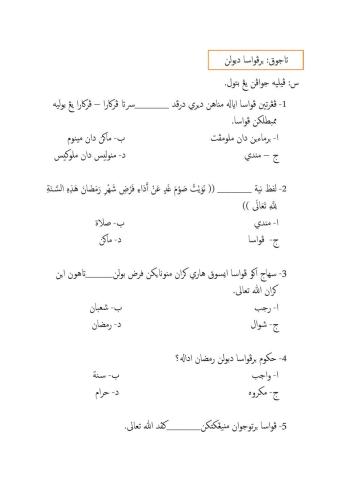 تاجوق: برڤواسا دبولن
س: ڤيليه جواڤن يڠ بتول.
1- ڤڠرتين ڤواسا اياله مناهن ديري درڤد _______سرتا ڤركارا – ڤركارا يڠ بوليه
ممبطلكن ڤواسا.
ا- برماءين دان ملومڤت
ب- ماكن دان مينوم
ج – مندي
د- منوليس دان ملوكيس
2- لفظ نية _______ (( نَوَيْتُ صَوْمَ غَدٍ عَنْ أَدَاءِ فَرْضِ شَهْرِ رَمَضَانَ هَذِهِ السَّنَةِ
لِلَّهِ تَعَالَى ))
ا- مندي
ب- صلاة
ج- ڤواسا
د- ماكن
3- سهاج اكو ڤواسا ايسوق هاري كران منونايكن فرض بولن_______تاهون اين
كران الله تعالى.
ا- رجب
ب- شعبان
ج- شوال
د- رمضان
4- حكوم برڤواسا دبولن رمضان اداله؟
ا- واجب
ب- سنة
ج- مكروه
د- حرام
5- ڤواسا برتوجوان منيڠكتكن_______كڤد الله تعالى.